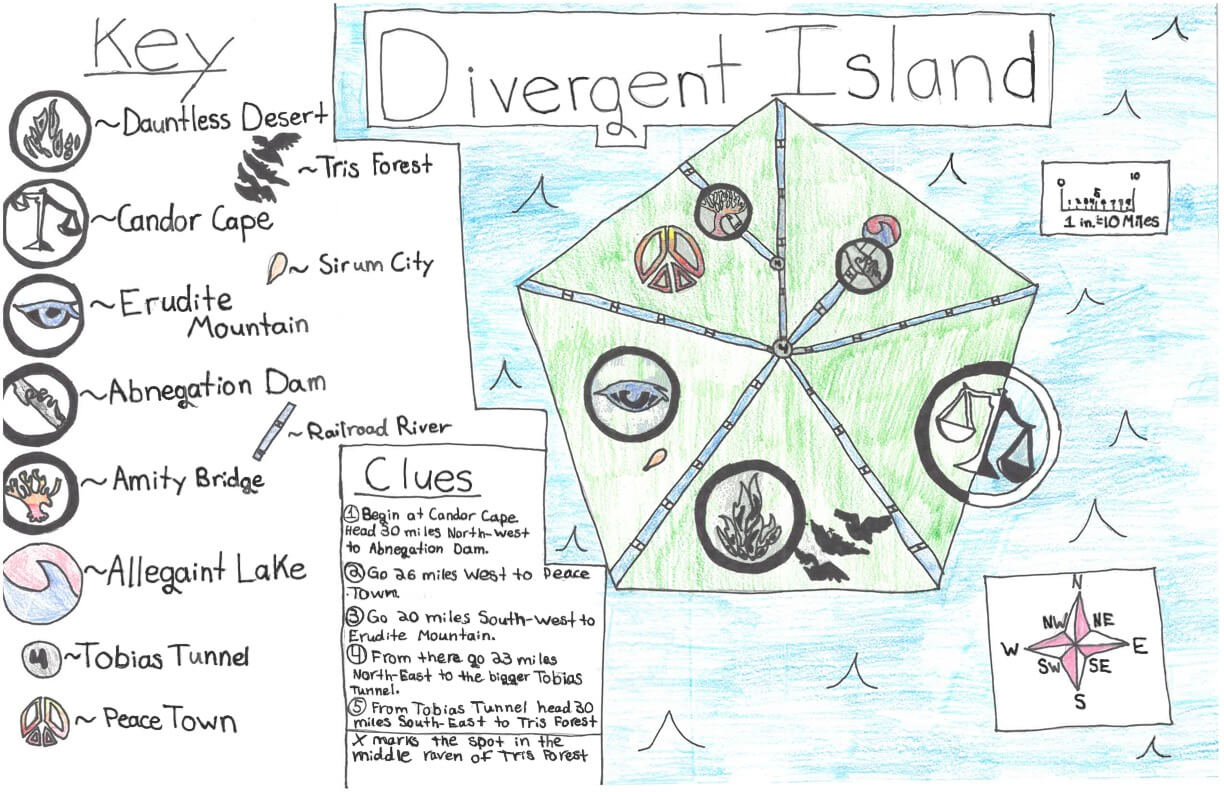 Key
Divergent Island
~Dauntless Desert
~Tris Forest
~Candor Cape
~ Sirum City
~Erudite
Mountain
~Abnegation Dam
~Railroad River
~Amity Bridge
~Allegaint Lake
4 ~Tobias Tunnel
~ Peace Town
Clues
① Begin at Candor Cape.
Head 30 miles North-West
to Abnegation Dam.
② Go 26 miles West to Peace
Town.
③ Go 20 miles South-West to
Erudite Mountain.
④ From there go 23 miles
North-East to the bigger Tobias
Tunnel.
⑤ From Tobias Tunnel head 30
miles South-East to Tris Forest
X marks the spot in the
middle raven of Tris Forest
0 5 10
1 in.=10 Miles
4
4
N
NW NE
W E
SW SE
S